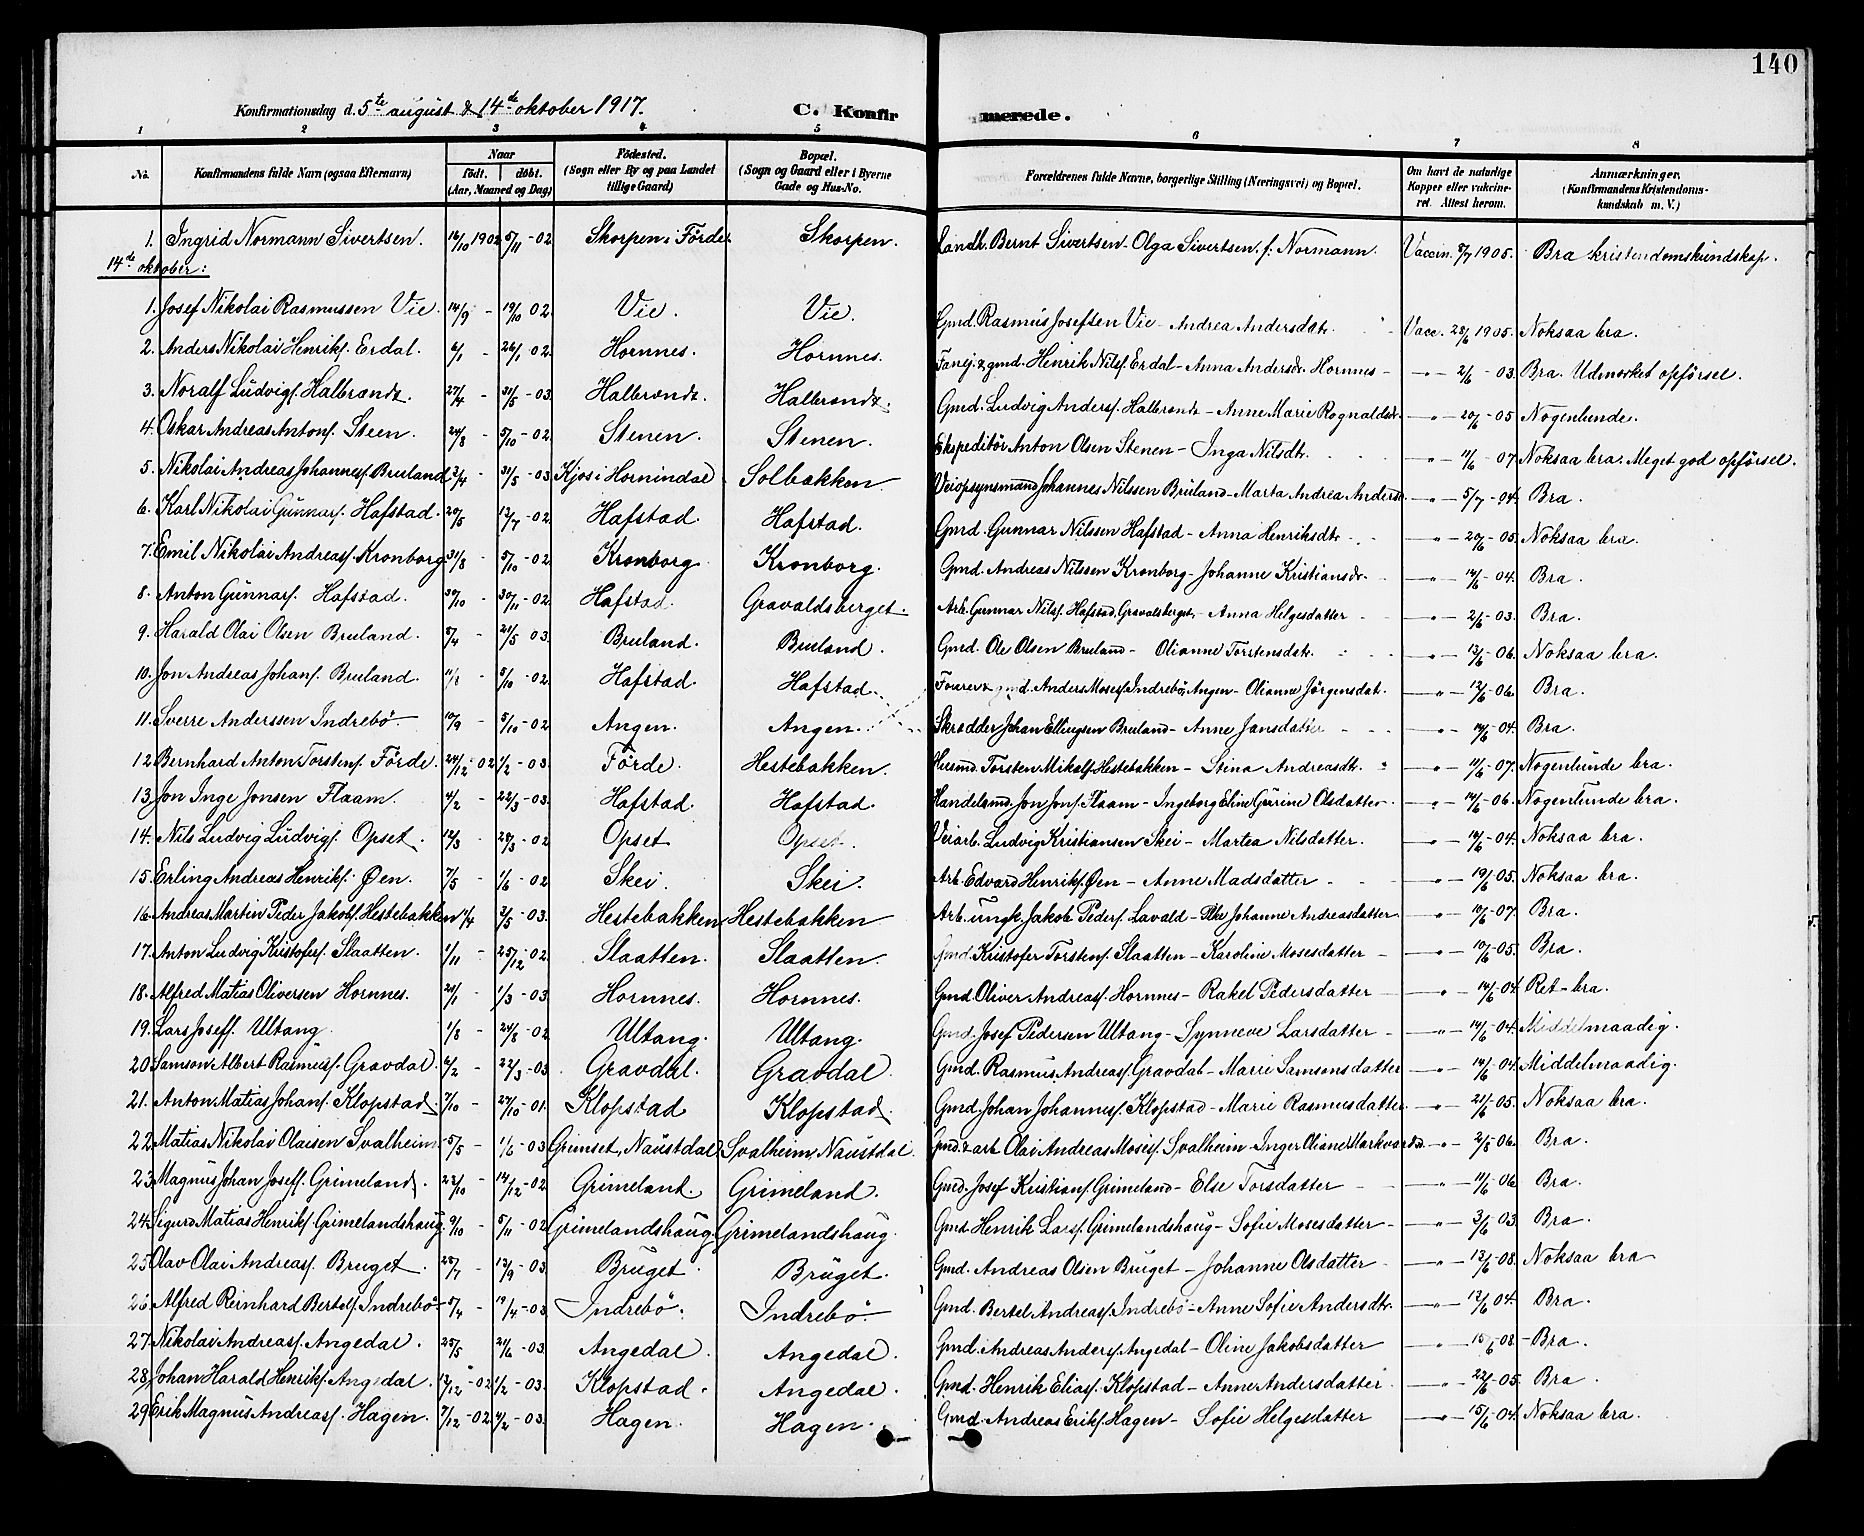 140
Konfirmationsdag d. 5te august & 14de oktober 1917. C. Konfirmerede.
1 2 3 4 5 6 7 8
No. Konfirmandens fulde Navn (ogsaa Efternavn) Naar født. døbt. (Aar, Maaned og Dag) Fødested. (Sogn eller By og paa Landet tillige Gaard) Bopæl. (Sogn og Gaard eller i Byerne Gade og Hus-No. Forældrenes fulde Navne, borgerlige Stilling (Næringsvei) og Bopæl. Om havt de naturlige Kopper eller vakcineret. Attest herom. Anmærkninger. (Konfirmandens Kristendomskundskab m. V.)
1. Ingrid Normann Sivertsen. 16/10 1902 5/11 - 02 Skorpen i Förde Skorpen. Landh. Bernt Sivertsen - Olga Sivertsen, f: Normann. Vaccin. 8/7 1905. Bra kristendomskundskap.
14de oktober:
1. Josef Nikolai Rasmussen Vie. 14/9 - 19/10 02. Vie. Vie. Gmd. Rasmus Josefsen Vie - Andrea Andersdatr. Vacc. 28/6 1905. Noksaa bra.
2. Anders Nikolai Henriks. Erdal. 6/1 - 26/1 - 02. Hornnes. Hornnes. Forrej. & gmd. Henrik Nilss. Erdal - Anna Andersdr. Hornnes - -"- 2/6 - 03. Bra. Udmærket opførsel.
3. Noralf Ludvigs. Halbrendz. 27/4 - 31/5 - 03. Halbrendz. Halbrendz. Gmd. Ludvig Anders. Halbrendz - Anne Marie Rognaldsdr. -"- 20/6 - 05 Nogenlunde.
4. Oskar Andreas Antons. Steen. 24/8 - 5/10 - 02. Stenen. Stenen. Ekspeditör Anton Olsen Stenen - Inga Nilsdtr. -"- 11/6 - 07 Noksaa bra.
5. Nikolai Andreas Johannes. Bruland 3/4 - 31/5 - 03 Kjos i Hornindal Solbakken Veiopsynsmand Johannes Nilssen Bruland - Marta Andrea Andersd. -"- 5/7 - 04. Bra. Meget god opførsel.
6. Karl Nikolai Gunnars. Hafstad. 20/5 13/7 - 02. Hafstad. Hafstad. Gmd. Gunnar Nilssen Hafstad - Anna Henriksdtr -"- 20/6 - 05. Noksaa bra.
7. Emil Nikolai Andreas. Kronborg. 31/8 - 5/10 - 02. Kronborg Kronborg. Gmd. Andreas Nilssen Kronborg - Johanne Kristiansdr. -"- 14/6 - 04. Bra.
8. Anton Gunnars. Hafstad. 30/10 - 30/11 - 02. Hafstad. Gravaldsberget. Arb. Gunnar Nils. Hafstad, Gravalsberget, - Anna Helgesdatter -"- 2/6 - 03. Bra.
9. Harald Olai Olsen Bruland. 5/4 - 21/5 03. Bruland. Bruland. Gmd. Ole Olsen Bruland - Olianne Torstensdatr. -"- 13/6 - 06. Noksaa bra.
10. Jon Andreas Johans. Bruland. 11/8 - 5/10 - 02. Hafstad. Hafstad. Forrer & gmd. Anders Moses. Indrebö, Angen - Olianne Jörgensdat. -"- 12/6 - 06. Bra.
11. Sverre Anderssen Indrebö. 10/9 - 5/10 - 02 Angen. Angen. Skrædder Johan Ellingsen Bruland - Anne Jansdatter -"- 14/6 - 04. Bra.
12. Bernhard Anton Torstens. Förde. 24/12 - 02 1/2 - 03. Förde. Hestebakken. Husmd. Torsten Mikals. Hestebakken - Stina Andreasdtr. -"- 11/6 - 07. Nogenlunde bra.
13. Jon Inge Jonsen Flaam. 4/2 - 22/3 - 03. Hafstad. Hafstad. Handelsmd. Jon Jons. Flaam - Ingeborg Eline Gurine Olsdatter -"- 14/6 - 06. Nogenlunde bra.
14. Nils Ludvig Ludvigs. Opset. 13/3 - 28/3 - 02 Opset Opset. Veiarb. Ludvig Kristiansen Skei - Martea Nilsdatter. -"- 14/6 - 04. Noksaa bra.
15. Erling Andreas Henriks. Øen. 7/5 - 1/6 - 02 Skei. Skei. Arb. Edvard Henriks. Øen - Anne Madsdatter -"- 19/6 05. Noksaa bra.
16. Andreas Martin Peder Jakobs. Hestebakken 4/4 3/5 - 03. Hestebakken Hestebakken Arb. ungk. Jakob Peders. Lavald - Pike Johanne Andreasdatter. -"- 10/6 - 07. Bra.
17. Anton Ludvig Kristofers. Slaatten. 1/11 - 25/12 - 02. Slaatten. Slaatten. Gmd. Kristofer Torstens. Slaatten - Karoline Mosesdatter -"- 10/6 - 05. Bra.
18. Alfred Matias Oliversen Hornnes. 24/1 - 1/3 - 03. Hornnes. Hornnes. Gmd. Oliver Andreas. Hornnes - Rakel Pedersdatter -"- 14/6 - 04. Ret - bra.
19. Lars Josefs. Ultang. 1/8 - 24/8 - 02. Ultang. Ultang. Gmd. Josef Pedersen Ultang - Synneve Larsdatter -"- 14/6 - 04. Middelmaadig.
20. Samson Albert Rasmus. Gravdal. 6/2 - 22/3 - 03. Gravdal. Gravdal Gmd. Rasmus Andreas. Gravdal - Marie Samsonsdatter -"- 14/6 - 04. Middelmaadig.
21. Anton Matias Johans. Klopstad. 7/10 - 27/10 - 01. Klopstad Klopstad. Gmd. Johan Johannes. Klopstad - Marie Rasmusdatter -"- 21/6 - 05. Noksaa bra.
22. Matias Nikolai Olaisen Svalheim 5/5 - 1/6 - 03 Grimset, Naustdal Svalheim, Naustdal. Gmd. & arb. Olai Andreas Moses. Svalheim - Inger Oliane Markvardsd. -"- 2/8 06. Bra.
23. Magnus Johan Josefs. Grimeland. 23/10 - 14/12 - 02 Grimeland. Grimeland. Gmd. Josef Kristians. Grimeland - Else Torsdatter -"- 11/6 06 Bra.
24. Sigurd Matias Henriks. Grimelandshaug. 9/10 - 5/11 - 02 Grimelandshaug Grimelandshaug. Gmd. Henrik Lars. Grimelandshaug - Sofie Mosesdatter -"- 3/6 03. Bra.
25. Olav Olai Andreas. Bruget. 28/7 - 13/9 - 03 Bruget. Bruget. Gmd. Andreas Olsen Bruget - Johanne Olsdatter -"- 13/6 - 08. Noksaa bra
26. Alfred Reinhard Bertels. Indrebö 5/4 - 19/4 - 03. Indrebö. Indrebö. Gmd. Bertel Andreas. Indrebö - Anne Sofie Andersdtr. -"- 12/6 04. Bra.
27. Nikolai Andreas. Angedal. 25/5 21/6 - 03. Angedal. Angedal. Gmd. Andreas Anders. Angedal - Oline Jakobsdatter -"- 15/6 08. - Bra.
28. Johan Harald Henriks. Angedal. 13/12 - 02 1/2 - 03. Klopstad. Angedal. Gmd. Henrik Elias. Klopstad - Anne Andersdatter -"- 22/6 - 05. Bra.
29. Erik Magnus Andreas. Hagen. 7/12 - 02 4/2 - 03. Hagen. Hagen. Gmd. Andreas Eriks. Hagen - Sofie Helgesdatter -"- 15/6 - 04. Noksaa bra.